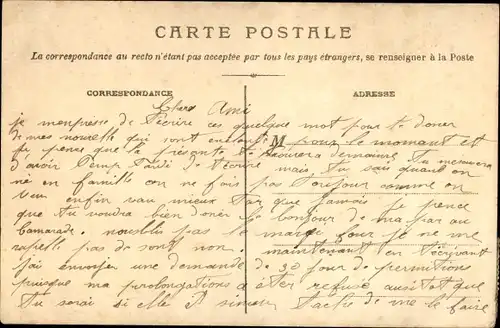 CARTE POSTALE
La correspondance au recto n'étant pas acceptée par tous les pays étrangers, se renseigner à la Poste
CORRESPONDANCE
ADRESSE
Chers Ami
je m'empresse de t'écrire ces quelque mot pour te doner
de mes nouvelle qui sont M pour le moment et
je pence que la présente te trouvera de même Tu
d'avoir temp tarde de t'écrire mais Tu sais quand on
né en famille on ne fais pas Toujour comme on
veu enfin vau mieux Tar que Jamais je pence
que tu voudra bien doner le bonjour de ma par au
Camarade. noublis pas le jour je ne me
rapelle pas de sont non. maintenant en t'ecrivant
j'ai envoyer une demande de 30 jour de permitions
puisque ma prolongations a éter refusé aussitot que
Tu sorai si elle tache de me le faire